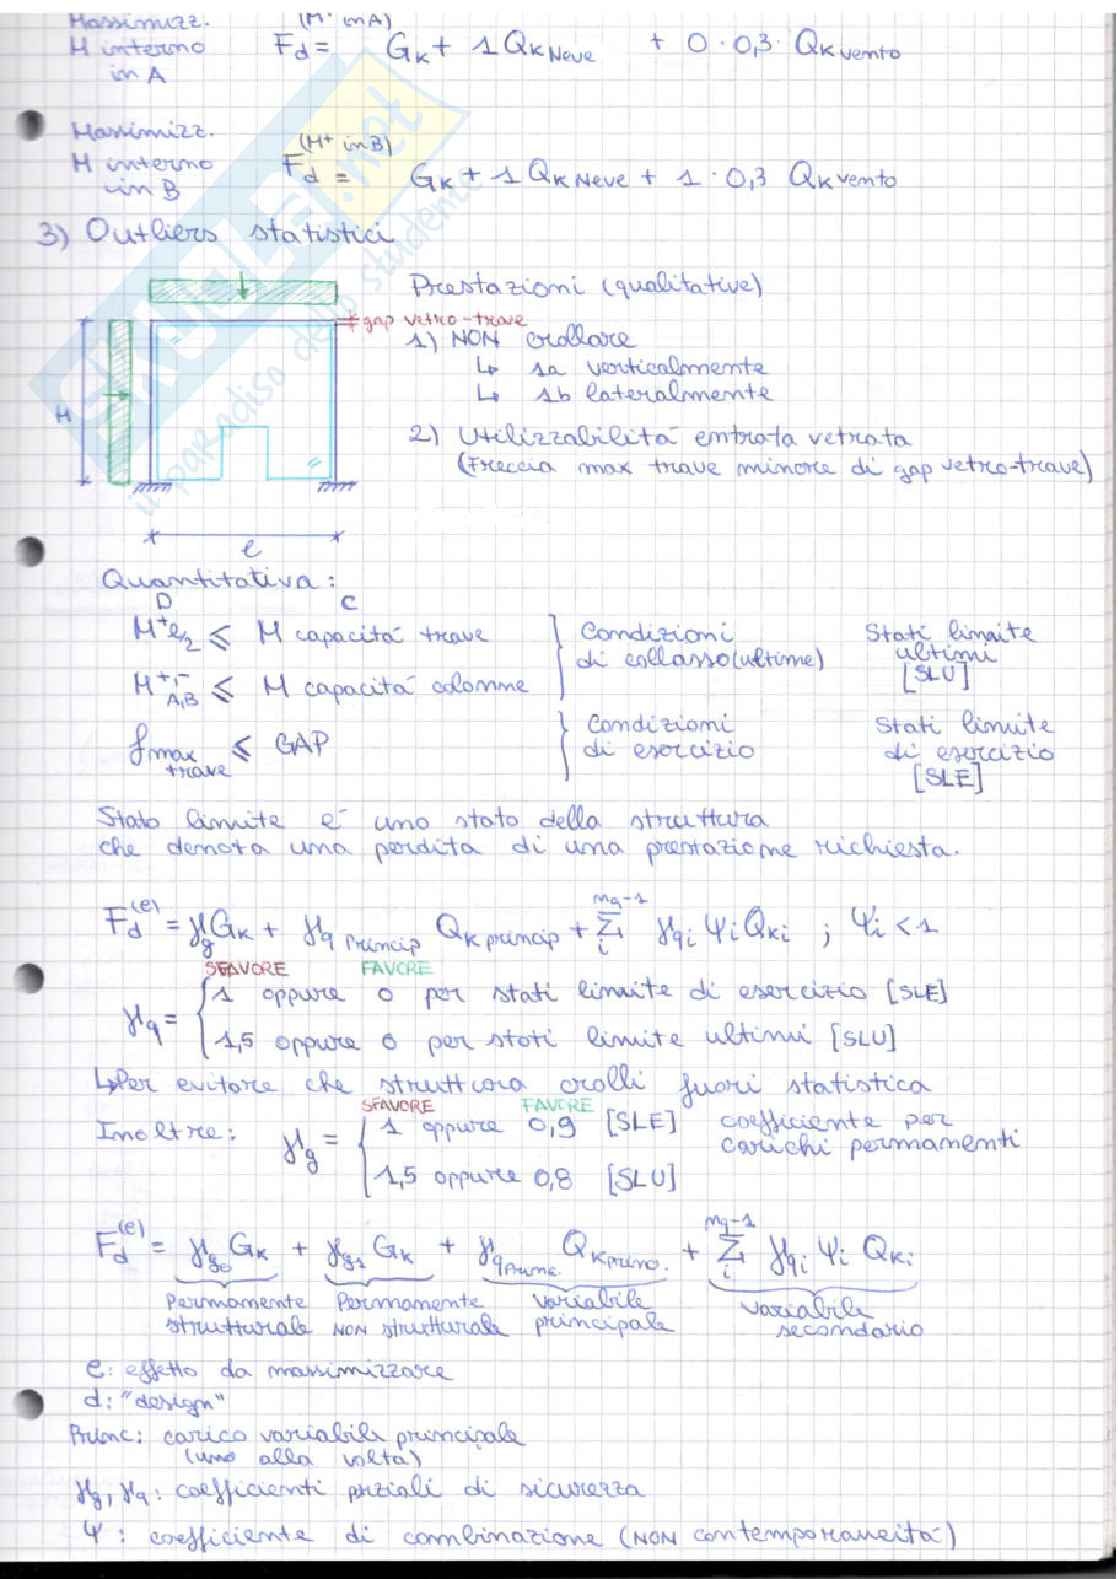 Massimizz.
M interno
in A
(M⁻ in A)
Fd = Gk + 1 Qk Neve + 0 · 0,3 · Qk vento
Massimizz.
M interno
in B
(M⁺ in B)
Fd = Gk + 1 Qk Neve + 1 · 0,3 Qk vento
3) Outliers statistici
Prestazioni (qualitative)
gap vetro-trave
1) NON crollare
↳ 1a verticalmente
↳ 1b lateralmente
H
2) Utilizzabilità entrata vetrata
(freccia max trave minore di gap vetro-trave)
l
il paradiso dello studente
Quantitativa:
D C
M⁺ e/2 ⩽ M capacità trave
M⁺,⁻ A,B ⩽ M capacità colonne
Condizioni
di collasso (ultime)
Stati limite
ultimi
[SLU]
fmax trave ⩽ GAP
Condizioni
di esercizio
Stati limite
di esercizio
[SLE]
Stato limite è uno stato della struttura
che denota una perdita di una prestazione richiesta.
Fd^(e) = γg Gk + γq princip Qk princip + Σi^(nq-1) γqi ψi Qki ; ψi < 1
SFAVORE FAVORE
γq = { 1 oppure 0 per stati limite di esercizio [SLE]
1,5 oppure 0 per stati limite ultimi [SLU]
↳ Per evitare che struttura crolli fuori statistica
SFAVORE FAVORE
Inoltre: γg = { 1 oppure 0,9 [SLE]
1,5 oppure 0,8 [SLU]
coefficiente per
carichi permanenti
Fd^(e) = γg0 Gk + γg1 Gk + γq princ. Qk princ. + Σi^(nq-1) γqi ψi Qki
Permanente strutturale
Permanente NON strutturale
variabile principale
variabile secondario
e: effetto da massimizzare
d: "design"
Princ: carico variabile principale
(uno alla volta)
γg, γq: coefficienti prziali di sicurezza
ψ : coefficiente di combinazione (NON contemporaneità)